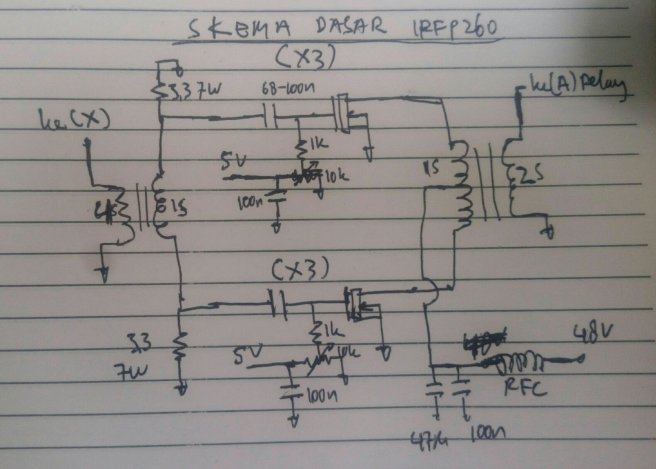 SKEMA DASAR IRFP260
(X3)
3,3 7W
68-100n
ke(A) Relay
ke(X)
1k
5V
10k
1S
2S
100n
1S
(X3)
3,3
7W
1k
5V
10k
100n
48V
RFC
47µ
100n